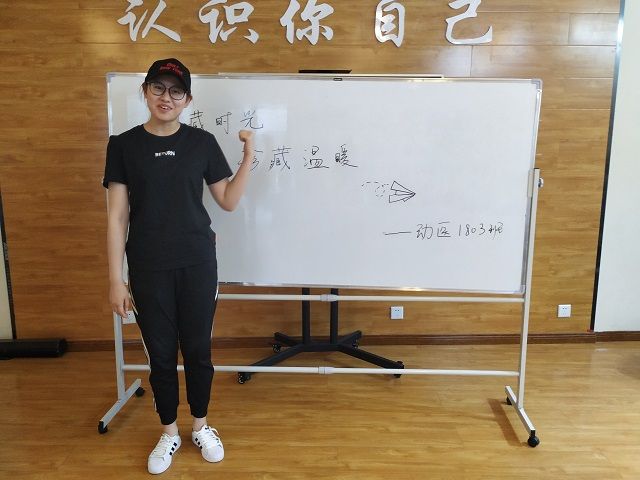 认识你自己
藏时光
珍藏温暖
——动医1803班
RETURN